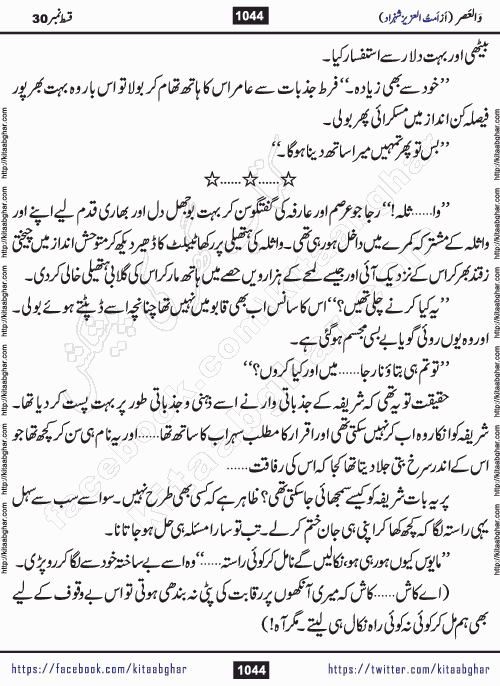 قسط نمبر 30
1044
وَالعَصر (از اَمتُ العزیز شہزاد)
بیٹھی اور بہت دلار سے استفسار کیا۔
”خود سے بھی زیادہ۔“ فرط جذبات سے عامر اس کا ہاتھ تھام کر بولا تو اس بار وہ بہت بھرپور
فیصلہ کن انداز میں مسکرائی پھر بولی۔
”بس تو پھر تمہیں میرا ساتھ دینا ہوگا۔“
☆......☆......☆
”وا......ثلہ!“ رجا جو عصم اور عارفہ کی گفتگو سن کر بہت بوجھل دل اور بھاری قدم لیے اپنے اور
واثلہ کے مشترکہ کمرے میں داخل ہو رہی تھی۔ واثلہ کی ہتھیلی پر رکھا ٹیبلٹ کا ڈھیر دیکھ کر متوحش انداز میں چیختی
زقند بھر کر اس کے نزدیک آئی اور جیسے لمحے کے ہزارویں حصے میں ہاتھ مار کر اس کی گلابی ہتھیلی خالی کر دی۔
”یہ کیا کرنے چلی تھیں؟“ اس کا سانس اب بھی قابو میں نہیں تھا چنانچہ اسے ڈپٹتے ہوئے بولی۔
اور وہ یوں روئی گویا بے بسی مجسم ہو گئی ہے۔
”تو تم ہی بتاؤ نا رجا......میں اور کیا کروں؟“
حقیقت تو یہ تھی کہ شریفہ کے جذباتی وار نے اسے ذہنی و جذباتی طور پر بہت پست کر دیا تھا۔
شریفہ کو انکار وہ اب کر نہیں سکتی تھی اور اقرار کا مطلب سہراب کا ساتھ تھا......اور یہ نام ہی سن کر کچھ تھا جو
اس کے اندر سرخ بتی جلا دیتا تھا کجا کہ اس کی رفاقت......
پر یہ بات شریفہ کو کیسے سمجھائی جا سکتی تھی؟ ظاہر ہے کسی بھی طرح نہیں۔ سو اسے سب سے سہل
یہی راستہ لگا کہ کچھ کھا کر اپنی ہی جان ختم کر لے۔ تب تو سارا مسئلہ ہی حل ہو جاتا نا۔
”مایوس کیوں ہو رہی ہو، نکالیں گے نا مل کر کوئی راستہ......“ وہ اسے بے ساختہ خود سے لگا کر رو پڑی۔
(اے کاش......کاش کہ میری آنکھوں پر رقابت کی پٹی نہ بندھی ہوتی تو اس بے وقوف کے لیے
بھی ہم مل کر کوئی نہ کوئی راہ نکال ہی لیتے۔ مگر آہ!)
https://facebook.com/kitaabghar
1044
https://twitter.com/kitaabghar
http://kitaabghar.com